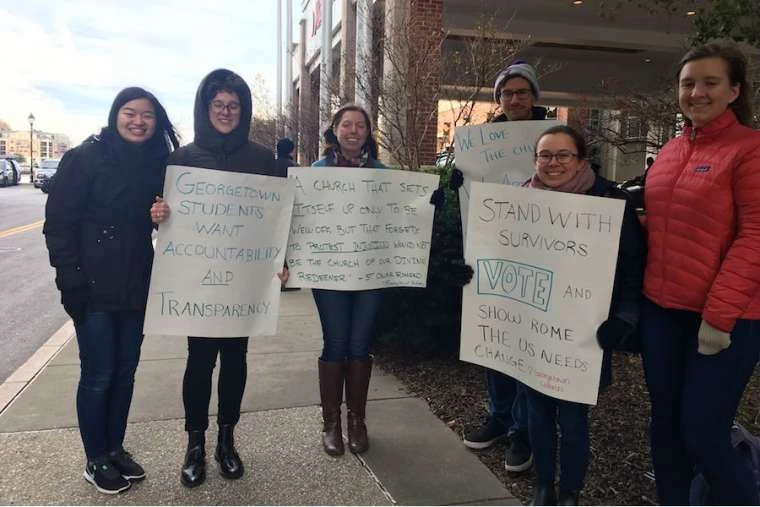 GEORGETOWN
STUDENTS
WANT
ACCOUNTABILITY
AND
TRANSPARENCY
A CHURCH THAT SETS
ITSELF UP ONLY TO BE
WELL OFF BUT THAT FORGETS
TO PROTEST INJUSTICE WOULD NOT
BE THE CHURCH OF OUR DIVINE
REDEEMER" - ST OSCAR ROMERO
WE LOVE
THE
STAND WITH
SURVIVORS
VOTE AND
SHOW ROME
THE US NEEDS
CHANGE